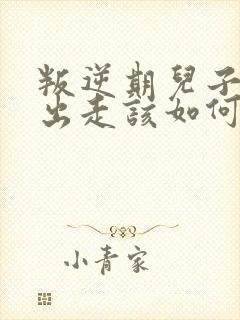 叛逆期兒子
出走該如何
小青家